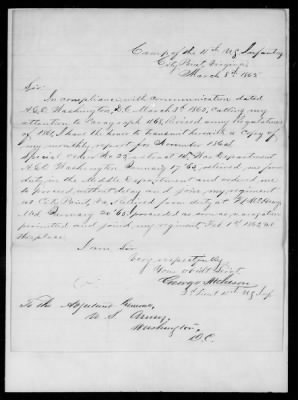 Camp of the 11th U.S. Infantry
City Point, Virginia
March 8th 1865
Sir
In compliance with communication dated
A.G.O. Washington, D.C. March 3d 1865, calling my
attention to Paragraph Revised Army Regulations
of 1861, I have the honor to transmit herewith a copy of
my monthly report for November 1864.
Special Order No 25 the War Department
A.G.O. Washington January 17 '65, relieved me from
duty in the Middle Department and ordered me
to proceed without delay and join my regiment
at City Point, Va. Relieved from duty at Ft McHenry
Md January 20 '65 proceeded as soon as navigation
permitted and joined my regiment Feb 1st at
this place.
I am Sir
Very respectfully
Your Obdt Servt
George
Lieut 11th U.S. Inf
To the Adjutant General,
U. S. Army,
Washington,
D.C.